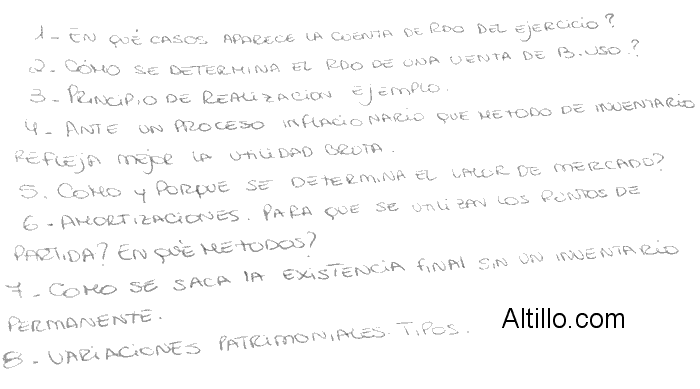 1- EN QUÉ CASOS APARECE LA CUENTA DE RDO DEL EJERCICIO?
2- CÓMO SE DETERMINA EL RDO DE UNA VENTA DE B.USO.?
3- PRINCIPIO DE REALIZACION EJEMPLO.
4- ANTE UN PROCESO INFLACIONARIO QUE METODO DE INVENTARIO
REFLEJA MEJOR LA UTILIDAD BRUTA.
5. COMO Y PORQUE SE DETERMINA EL VALOR DE MERCADO?
6- AMORTIZACIONES. PARA QUE SE UTILIZAN LOS PUNTOS DE
PARTIDA? EN QUÉ METODOS?
7- COMO SE SACA LA EXISTENCIA FINAL SIN UN INVENTARIO
PERMANENTE.
8- VARIACIONES PATRIMONIALES. TIPOS.
Altillo.com